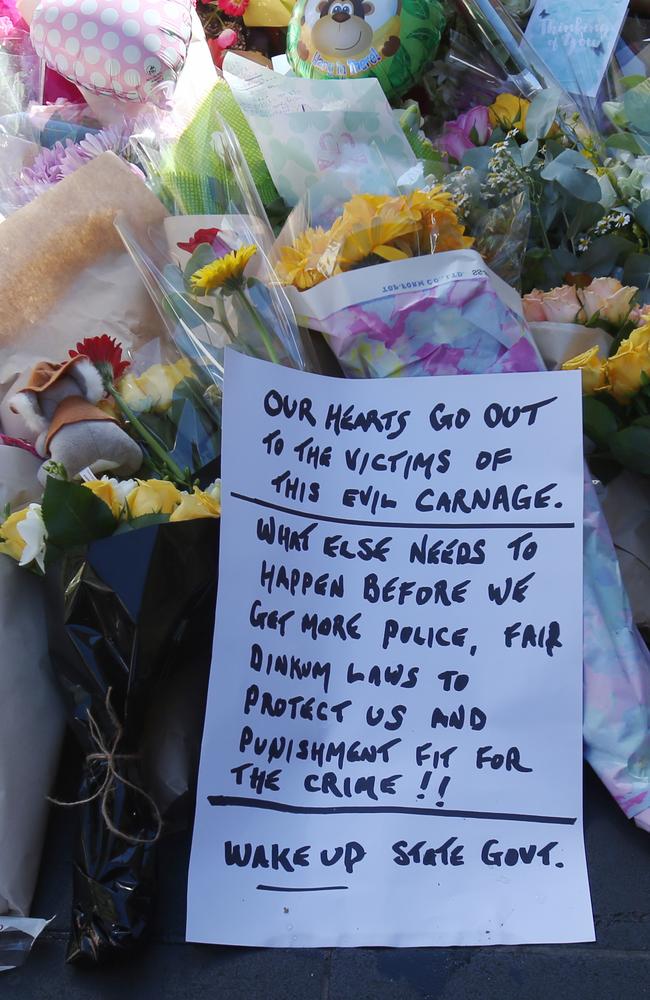 Thinking
of You
TOP-FORM CO., LTD.
OUR HEARTS GO OUT
TO THE VICTIMS OF
THIS EVIL CARNAGE.
WHAT ELSE NEEDS TO
HAPPEN BEFORE WE
GET MORE POLICE, FAIR
DINKUM LAWS TO
PROTECT US AND
PUNISHMENT FIT FOR
THE CRIME!!
WAKE UP STATE GOVT.